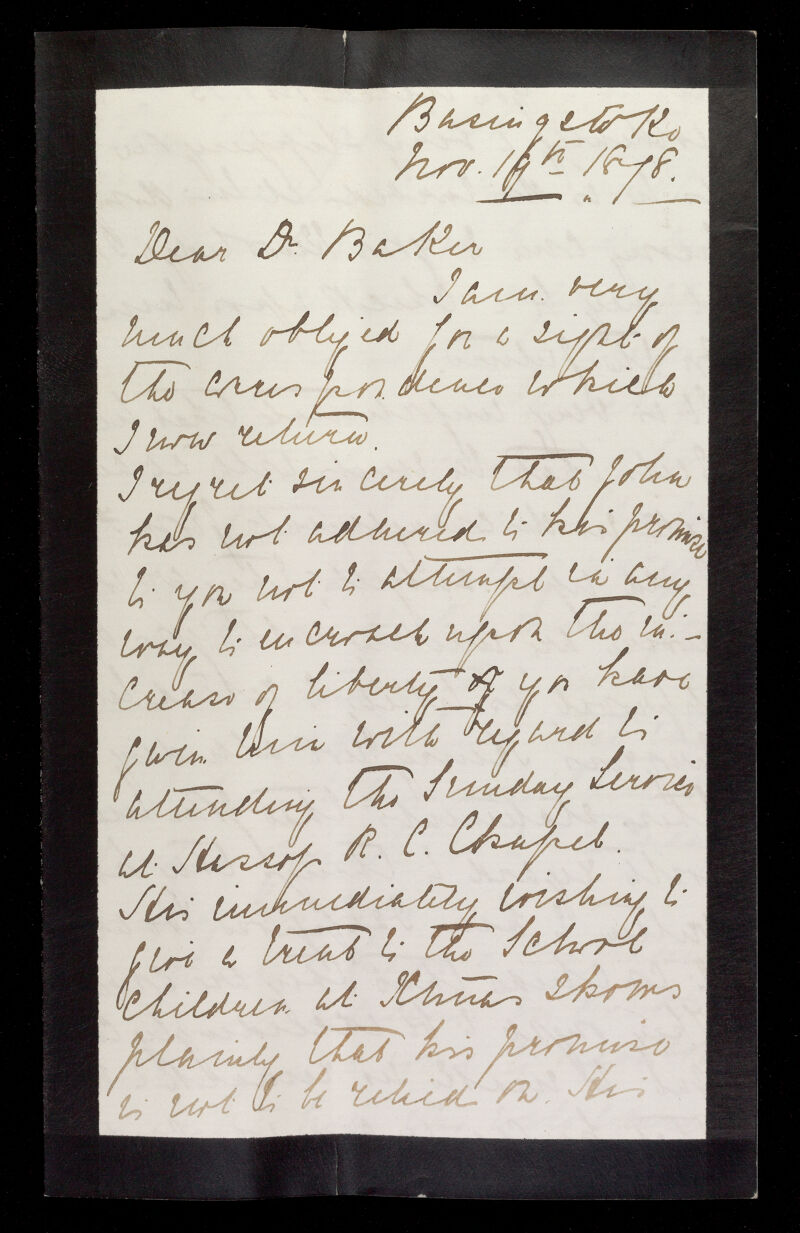 Basingstoke
Nov. 19th 1878.
Dear Dr. Baker
I am very
much obliged for a sight of
the correspondence which
I now return.
I regret sincerely that John
has not adhered to his promise
to you not to attempt in any
way to encroach upon the in-
crease of liberty you have
given him with regard to
attending the Sunday Service
at Hassop R. C. Chapel.
His immediately wishing to
give a treat to the School
Children at Xmas shows
plainly that his promise
is not to be relied on. His